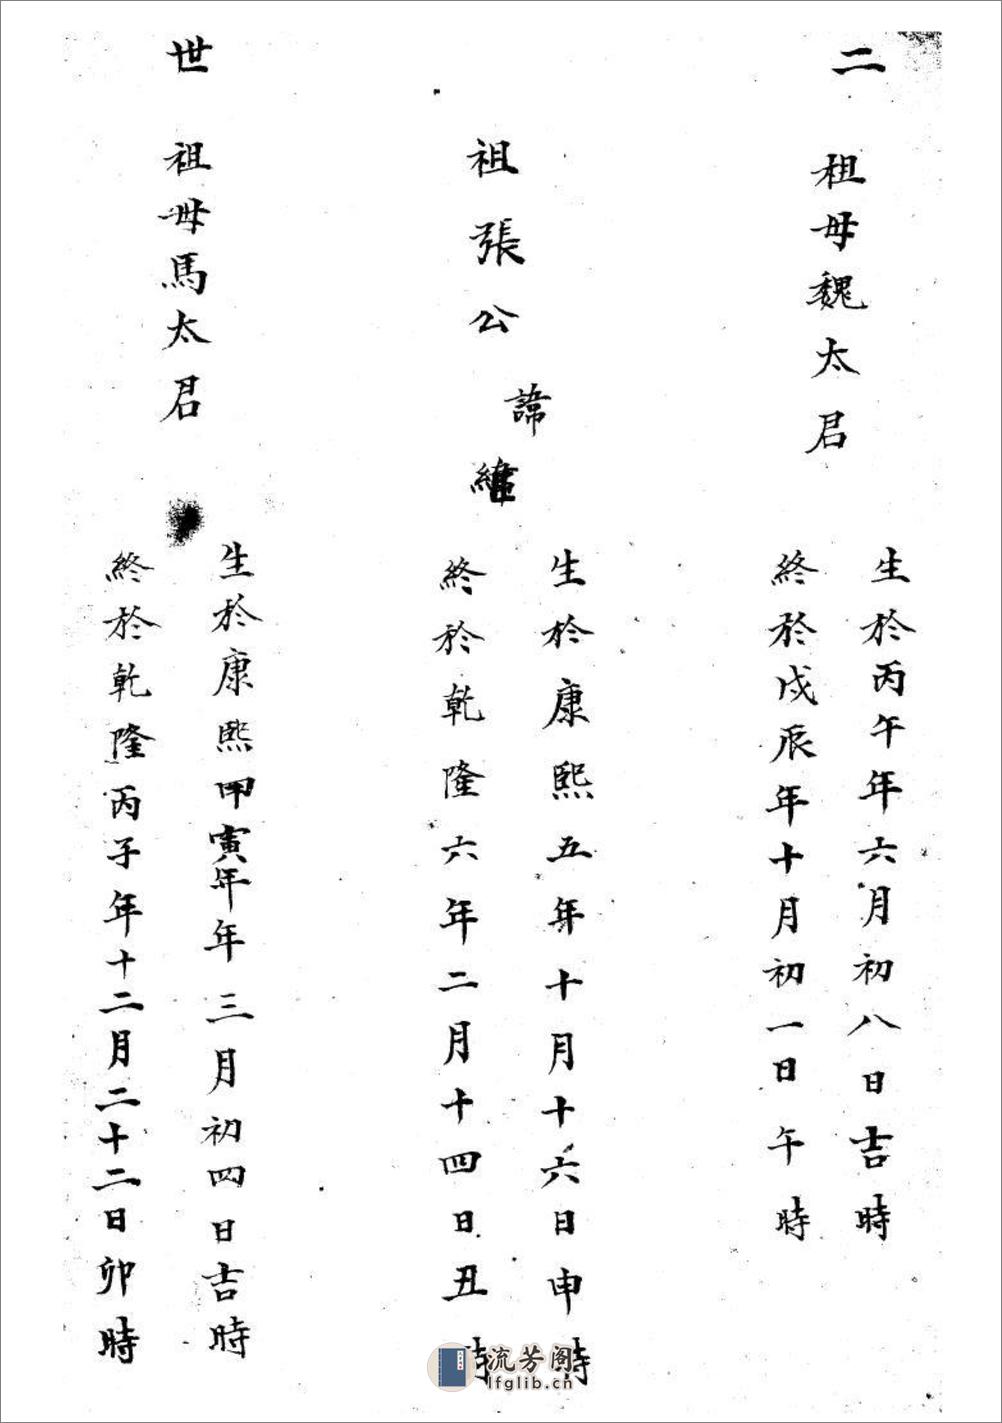 二
祖母魏太君
生於丙午年六月初八日吉時
終於戊辰年十月初一日午時
祖張公
諱
緯
生於康熙五年十月十六日申時
終於乾隆六年二月十四日丑時
世
祖母馬太君
生於康熙甲寅年年三月初四日吉時
終於乾隆丙子年十二月二十二日卯時
流芳阁
lfglib.cn